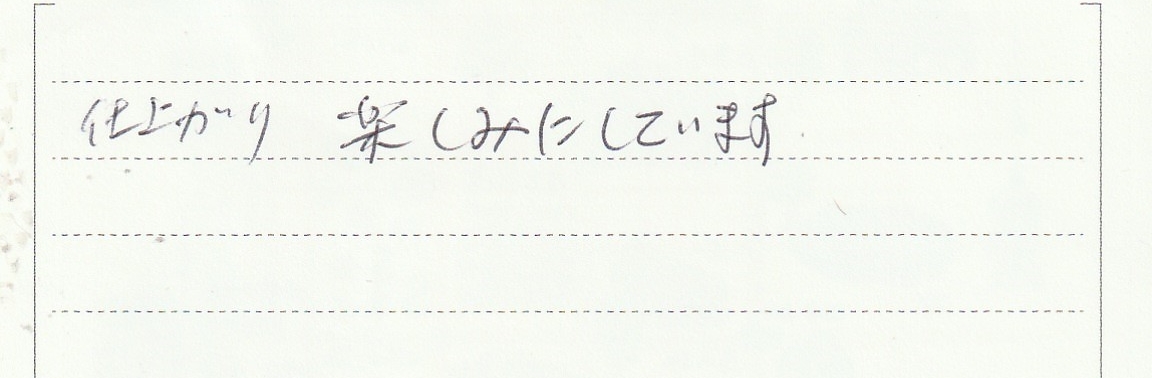 仕上がり 楽しみにしています.